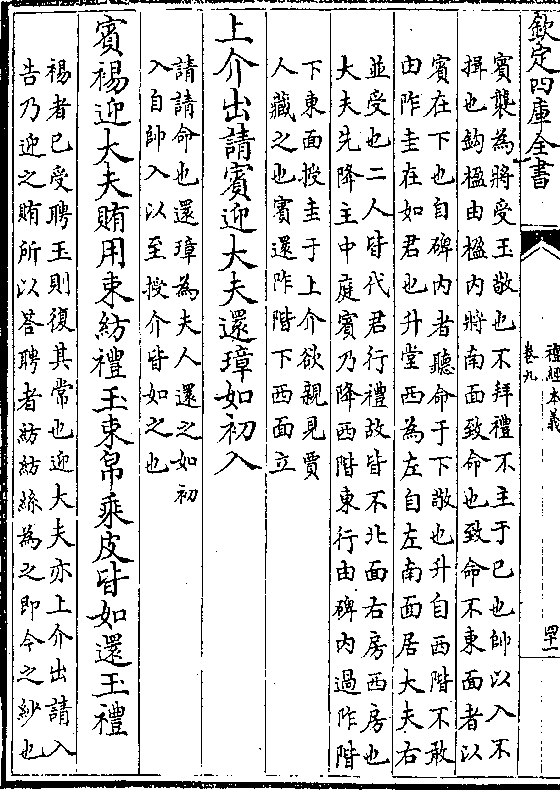 欽定四庫全書
禮經本義
卷九
罕一
賓襲為將受玉敬也不拜禮不主于已也帥以入不
揖也鈎楹由楹內將南面致命也致命不東面者以
賓在下也自碑內者聽命于下敬也升自西階不敢
由阼圭在如君也升堂西為左自左南面居大夫右
並受也二人皆代君行禮故皆不北面右房西房也
大夫先降主中庭賓乃降西階東行由碑內過阼階
下東面授圭于上介欲親見賈
人藏之也賓還阼階下西面立
上介出請賓迎大夫還璋如初入
請請命也還璋為夫人還之如初
入自帥入以至授介皆如之也
賓裼迎大夫賄用束紡禮玉束帛乘皮皆如還玉禮
裼者已受聘玉則復其常也迎大夫亦上介出請入
告乃迎之賄所以荅聘者紡紡絲為之即今之紗也